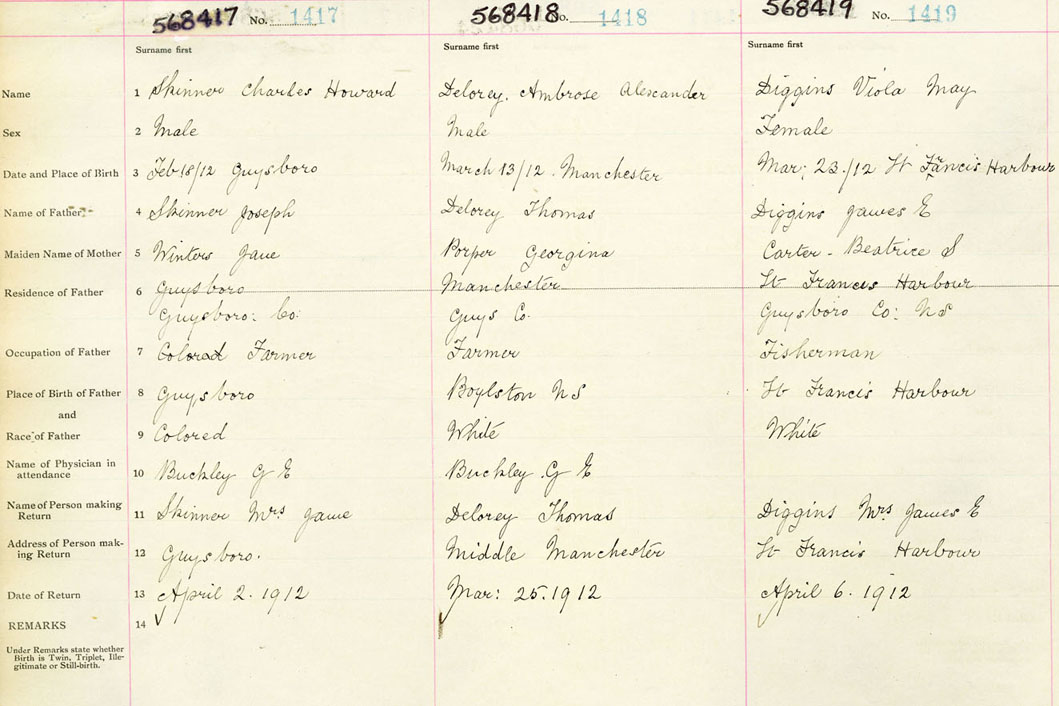 568417 No. 1417 568418 No. 1418 568419 No. 1419
Surname first Surname first Surname first
Name 1 Skinner Charles Howard Delorey, Ambrose Alexander Diggins Viola May
Sex 2 Male Male Female
Date and Place of Birth 3 Feb 18/12 Guysboro March 13/12. Manchester Mar; 23./12 St Francis Harbour
Name of Father 4 Skinner Joseph Delorey Thomas Diggins James E
Maiden Name of Mother 5 Winters Jane Porper Georgina Carter - Beatrice S
Residence of Father 6 Guysboro Manchester St Francis Harbour
Guysboro: Co: Guys Co. Guysboro Co: NS
Occupation of Father 7 Colored Farmer Farmer Fisherman
Place of Birth of Father 8 Guysboro Boylston NS St Francis Harbour
and
Race of Father 9 Colored White White
Name of Physician in
attendance 10 Buckley G E Buckley . G E
Name of Person making
Return 11 Skinner Mrs Jane Delorey Thomas Diggins Mrs James E
Address of Person mak-
ing Return 12 Guysboro. Middle Manchester St Francis Harbour
Date of Return 13 April 2. 1912 Mar: 25. 1912 April 6. 1912
REMARKS 14
Under Remarks state whether
Birth is Twin, Triplet, Ille-
gitimate or Still-birth.